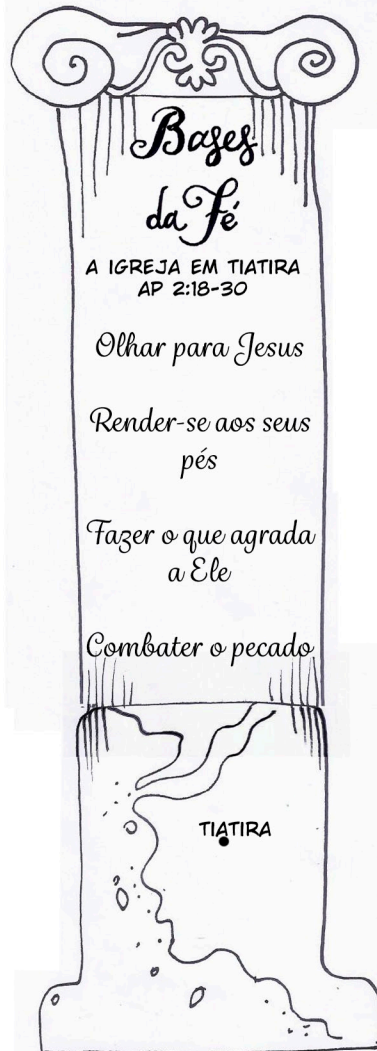 Bases
da Fé
A IGREJA EM TIATIRA
AP 2:18-30
Olhar para Jesus
Render-se aos seus
pés
Fazer o que agrada
a Ele
Combater o pecado
TIATIRA